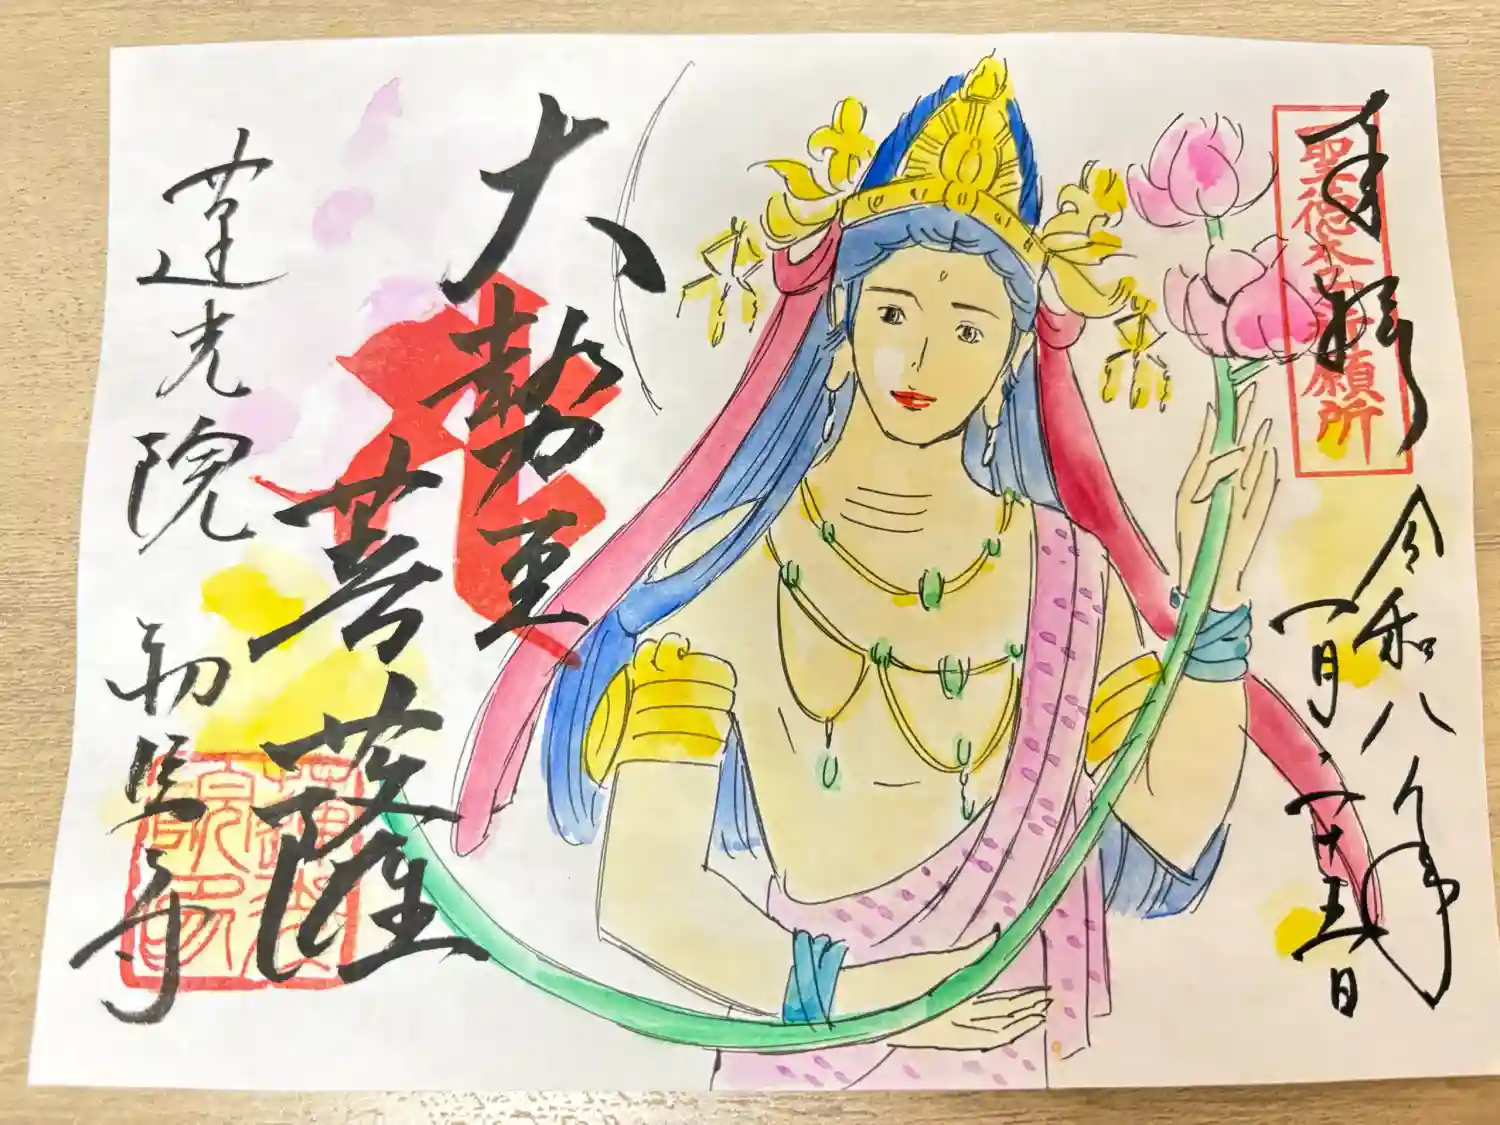 奉拝
聖徳太子祈願所
令和八年
一月二十五日
大勢至
菩薩
蓮光院 初馬寺